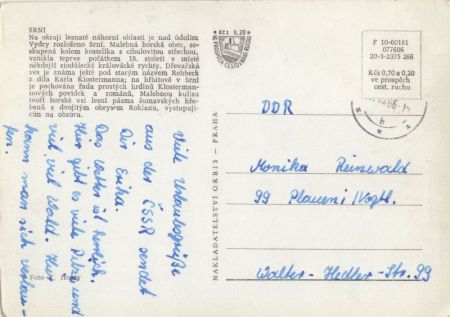 SRNÍ
Na okraji lesnaté náhorní oblasti je nad údolím
Vydry rozloženo Srní. Malebná horská obec, se-
skupená kolem kostelíka s cibulovitou střechou,
vznikla teprve počátkem 18. století v místě
někdejší stodůlecké královácké rychty. Dřevařská
ves je známa ještě pod starým názvem Rehberk
z díla Karla Klostermanna; na hřbitově v Srní
je pochována řada prostých hrdinů Klosterman-
nových povídek a románů. Malebnou kulisu
tvoří horské vsi lesní pásma šumavských hře-
benů s dvojitým obrysem Roklanu, vystupují-
cím na obzoru.
Kčs 0,20
VE PROSPĚCH CESTOVNÍHO RUCHU
F 10-60181
077606
20-3-2375 266
Kčs 0,70 a 0,20
ve prospěch
cest. ruchu
Viele Urlaubsgrüße
aus der ČSSR sendet
Dir Erika.
Das Wetter ist herrlich.
Hier gibt es viele Pilze und
viel viel Wald. Hier
kann man sich verlau-
fen.
NAKLADATELSTVÍ ORBIS - PRAHA
DDR
Monika Reinwald
99 Plauen i/Vogtl.
Walter-Hedler-Str. 99
Foto